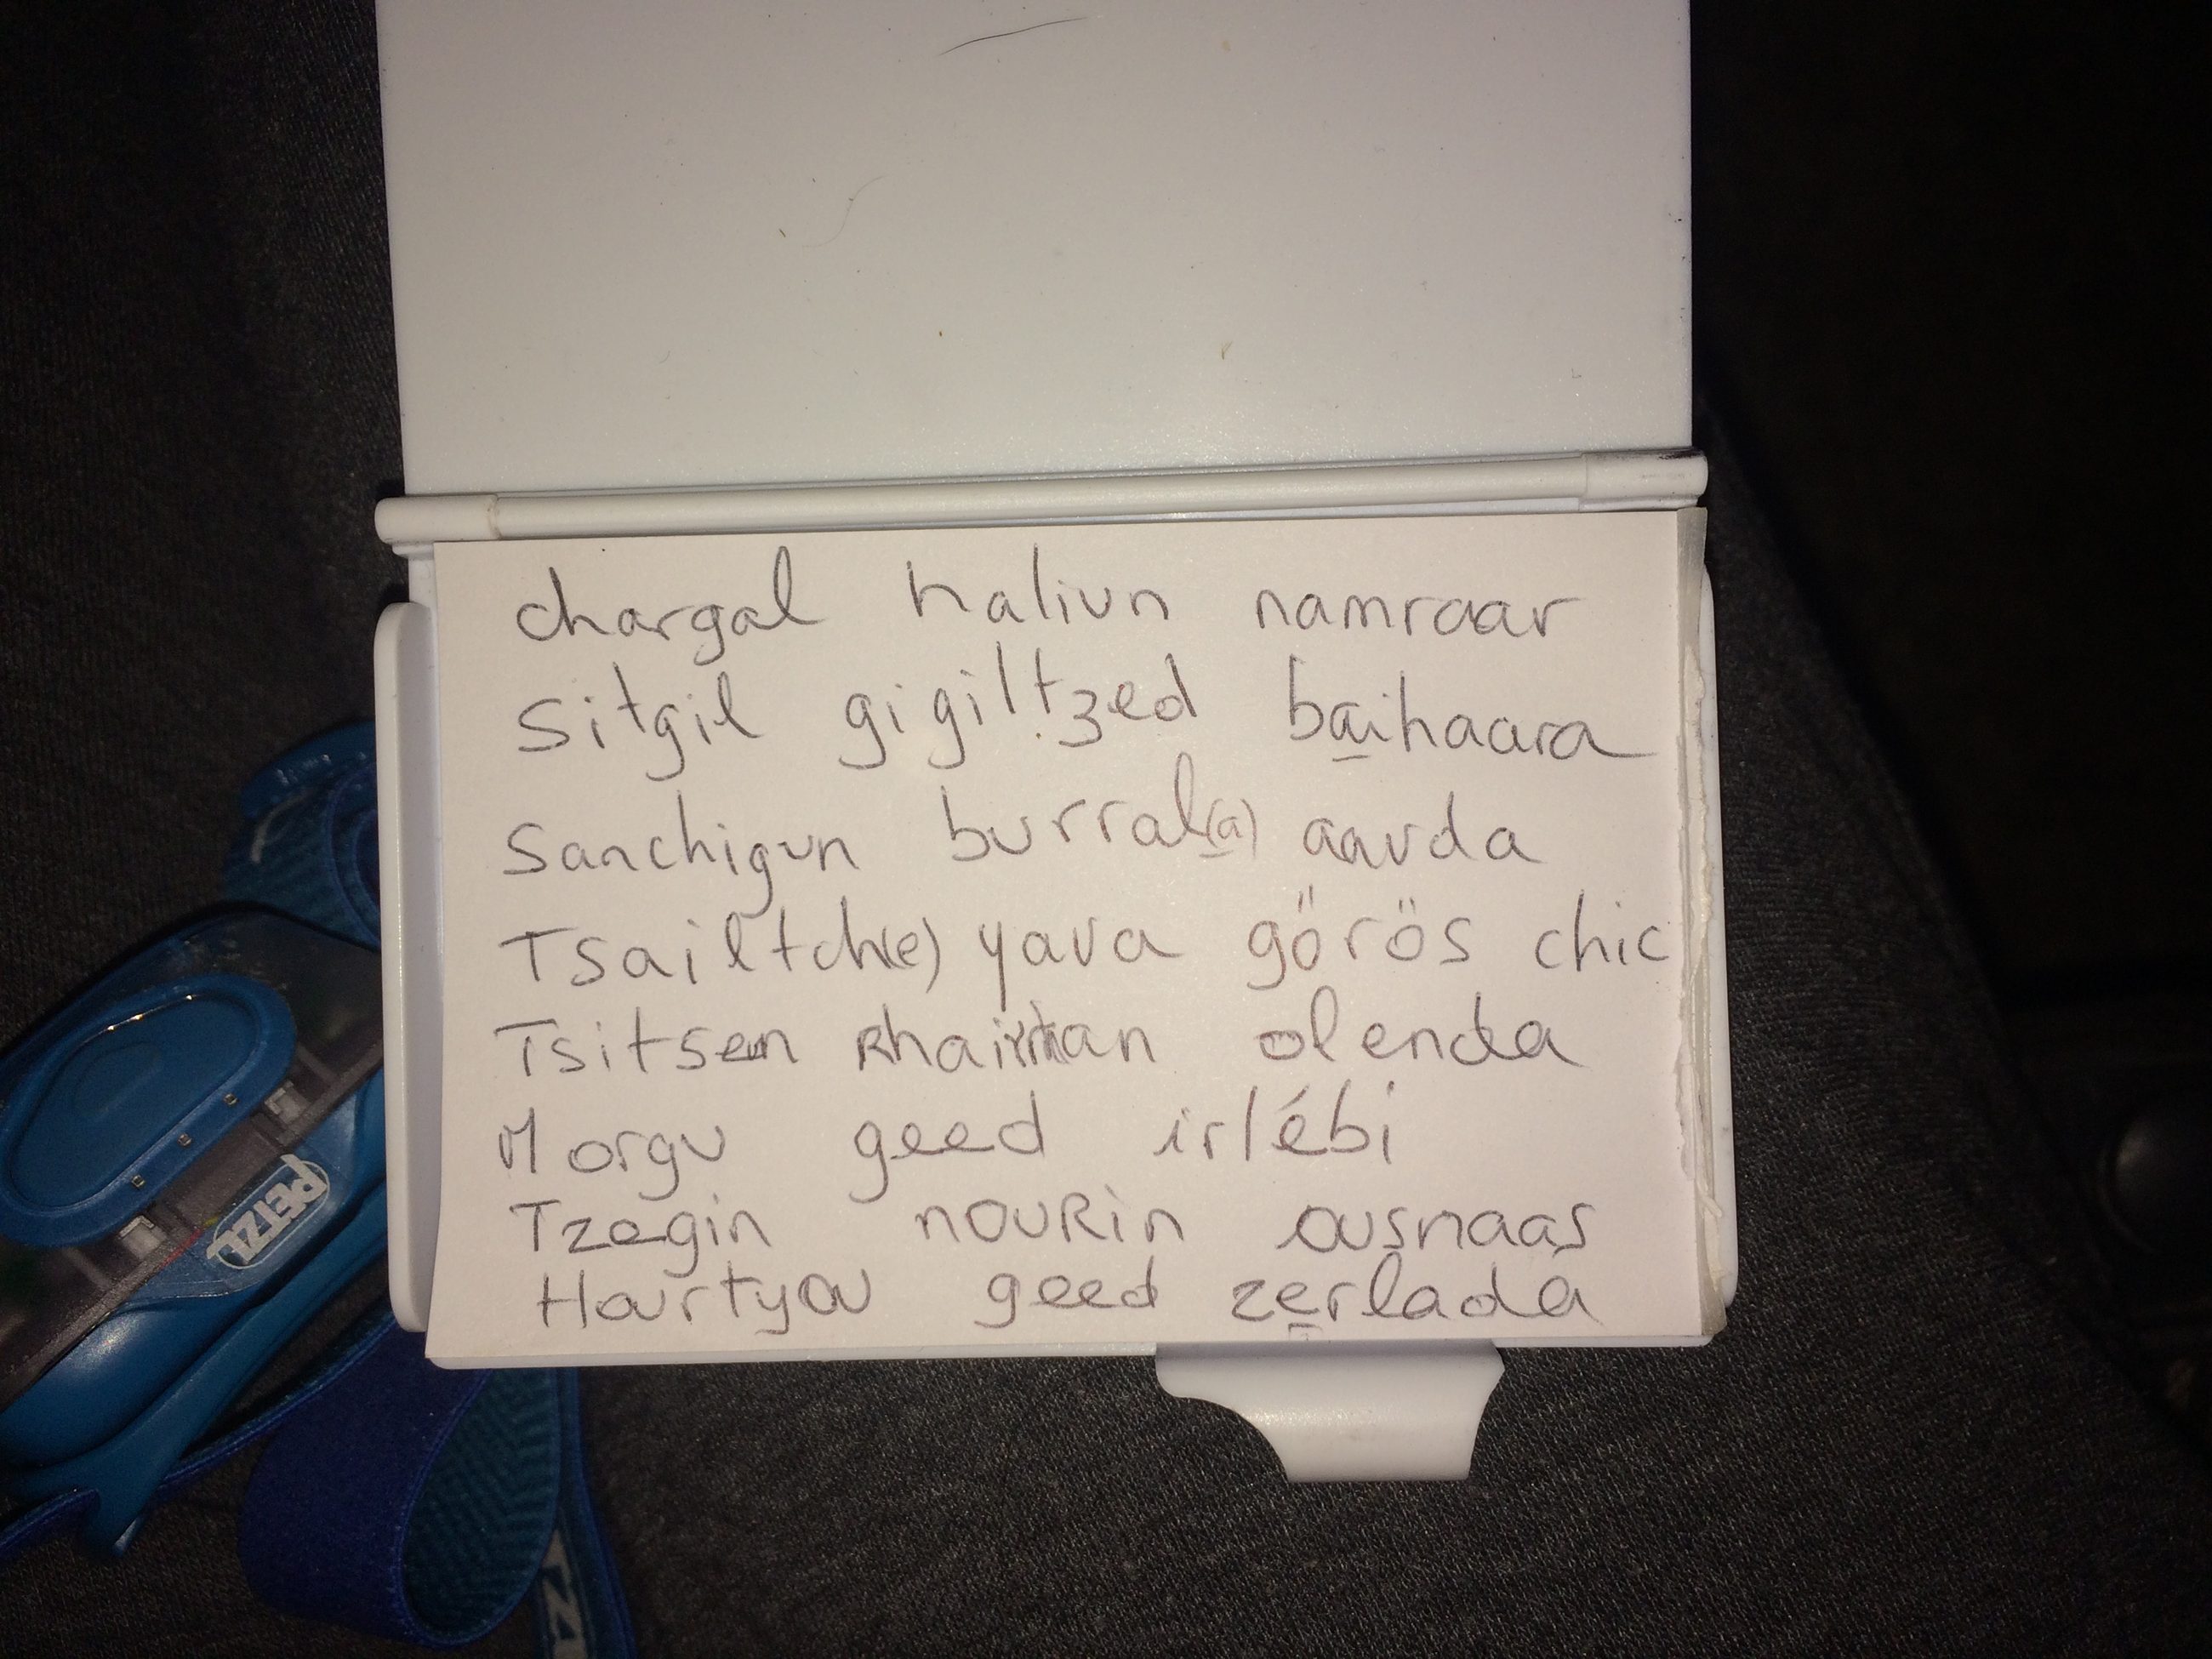 chargal haliun namraar
Sitgil gigiltzed baihaara
Sanchigun burral(a) aavda
Tsailtch(e) yava görös chic
Tsitsen olenda
Morgu geed irlébi
Tzegin nouRin ousnaas
Hairtyou geed zerlada
PETZL